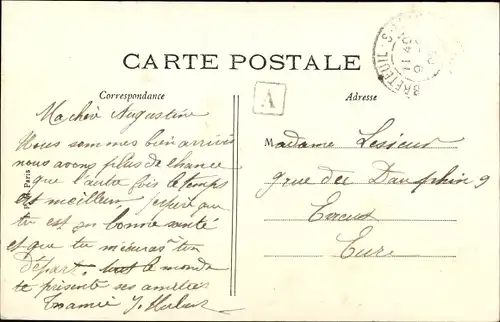 CARTE POSTALE
Correspondance
Adresse
A
BRETEUIL-S
Ma chère Augustine
Nous sommes bien arrivés
nous avons plus de chance
que l'autre fois le temps
est meilleur j'espère que
tu est en bonne santé
et que tu
Départ. tout le monde
te présente ses amitiés
Ton amie J.
Paris
Madame Lesieur
9 rue du Dauphin 9
Eure